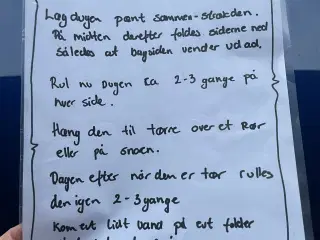 Læg dugen pænt sammen - stræk den.
På midten derefter foldes siderne ned
således at bagsiden vender ud ad.
Rul nu Dugen ca 2-3 gange på
hver side.
Hæng den til tørre over et Rør
eller på snoen.
Dagen efter når den er tør rulles
den igen 2-3 gange
Kom evt lidt vand på evt folder